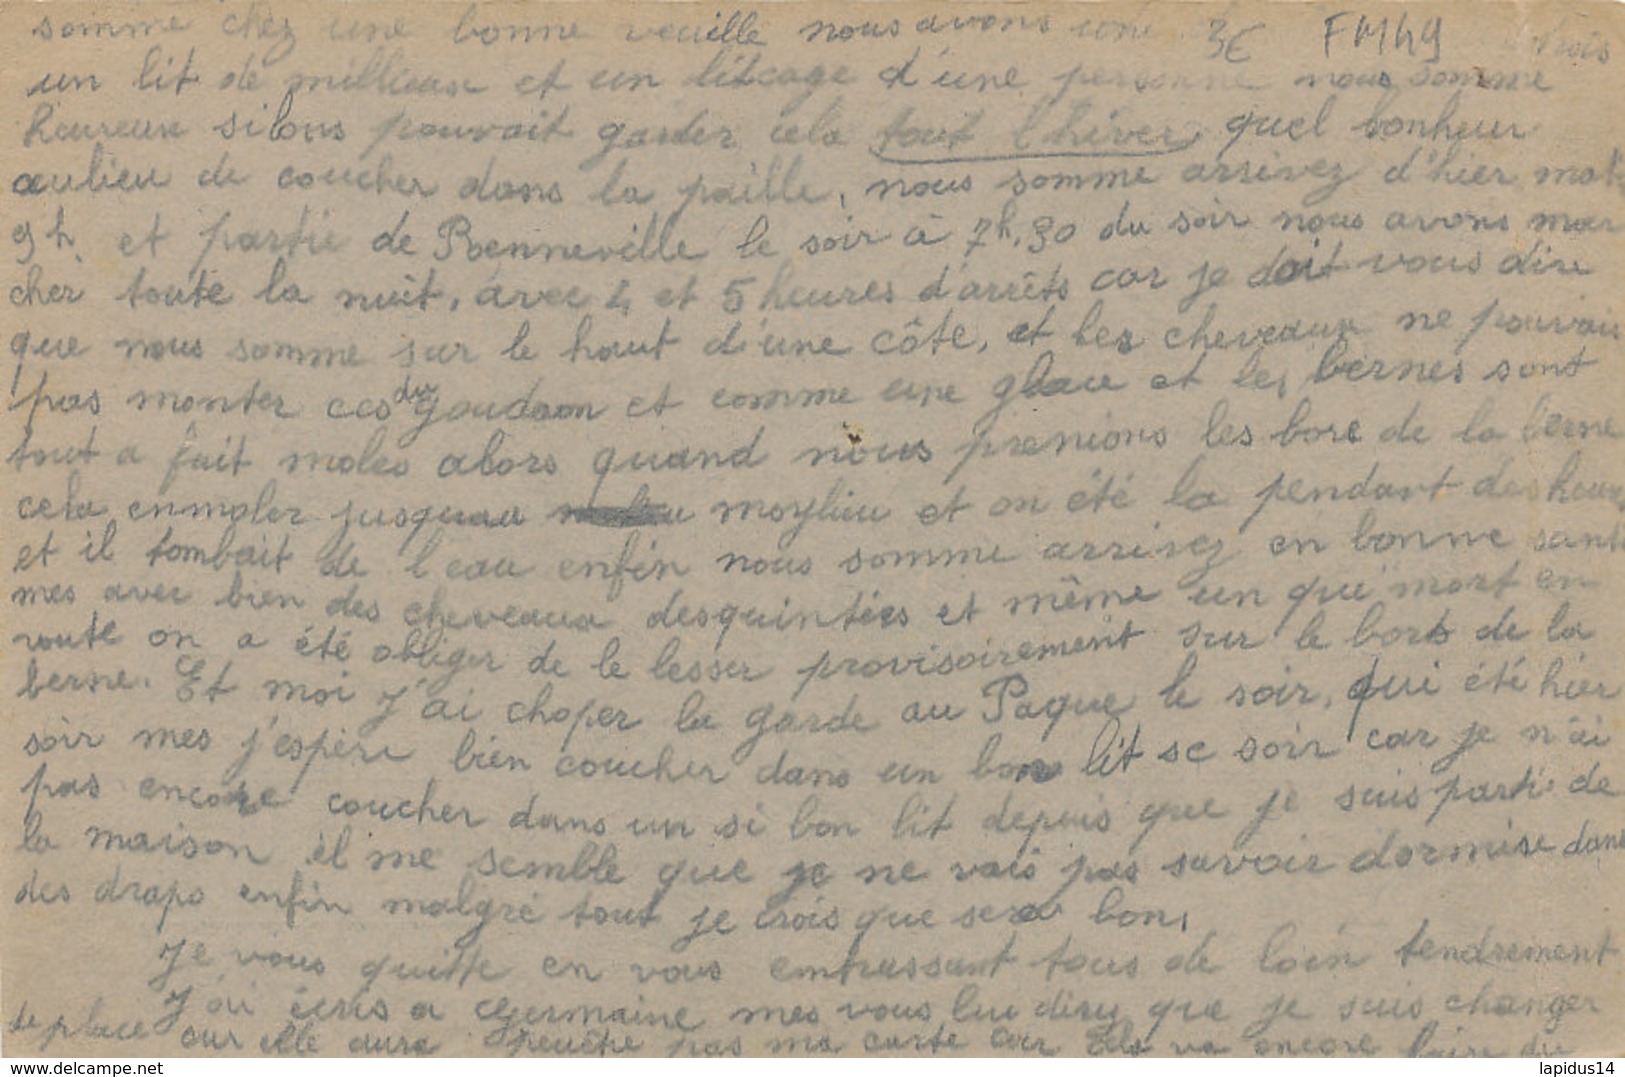 somme chez une bonne veuille nous avons 3€ FM49 trois
un lit de millieux et un litcage d'une personne nous somme
heureux silons pouvait garder cela tout l'hiver quel bonheur
aulieu de coucher dans la paille, nous somme arrivez d'hier mat
9h. et partie de Renneville le soir à 7h,30 du soir nous avons mar
cher toute la nuit, avec 4 et 5 heures d'arrêts car je doit vous dire
que nous somme sur le haut d'une côte, et les cheveaux ne pouvais
pas monter du goudron et comme une glace et les bernes sont
tout a fait moles alors quand nous prenions les bore de la berne
cela enmoler jusquau moylieu et on été la pendant des heures
et il tombait de l'eau enfin nous somme arrivez en bonne santé
mes avec bien des cheveaux desquintées et même un qui mort en
route on a été obliger de le lesser provisoirement sur le bord de la
berne. Et moi j'ai choper la garde au Paque le soir, qui été hier
soir mes j'espère bien coucher dans un bon lit se soir car je n'ai
pas encore coucher dans un si bon lit depuis que je suis parti de
la maison il me semble que je ne vais pas savoir dormire dans
des draps enfin malgré tout je crois que sera bon,
Je vous quitte en vous embrassant tous de loin tendrement
J'ai écris a Germaine mes vous lui direz que je suis changer
de place car elle aura peuêtre pas ma carte car cela va encore faire du
delcampe.net
lapidus14